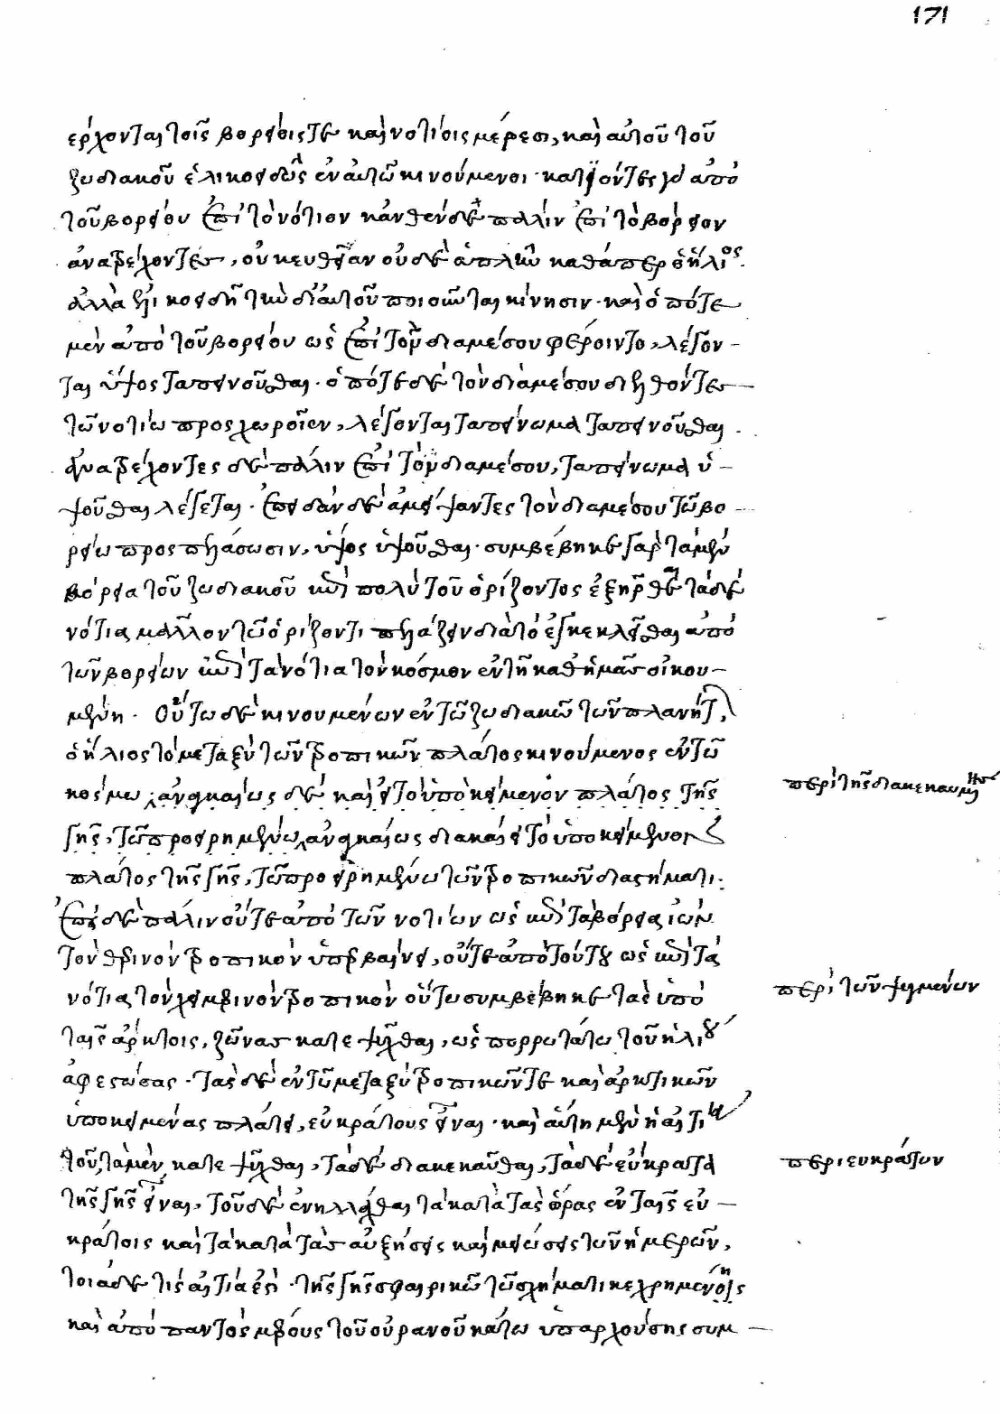 171
έρχονται τοῖς βορείοις τε καὶ νοτίοις μέρεσι, καὶ αὐτοῦ τοῦ
ζωδιακοῦ ἑλικοειδῶς ἐν αὐτῶ κινούμενοι· κατϊόντες γὰρ ἀπὸ
τοῦ βορείου ἐπὶ τὸ νότιον κἀνθένδε πάλιν ἐπὶ τὸ βόρειον
ἀνατρέχοντες, οὐκ εὐθεῖαν οὐδὲ ἁπλῆν καθάπερ ὁ ἥλιος.
ἀλλὰ ἑλικοειδῆ τὴν δι' αὐτοῦ ποιοῦνται κίνησιν· καὶ ὁπότε
μὲν ἀπὸ τοῦ βορείου ὡς ἐπὶ τὸν διαμέσου φέροιντο, λέγον-
ται ὕψος ταπεινοῦσθαι· ὁπότε δὲ τὸν διαμέσου διελθόντες
τῶ νοτίω προσχωροῖεν, λέγονται ταπείνωμα ταπεινοῦσθαι.
ἀνατρέχοντες δὲ πάλιν ἐπὶ τὸν διαμέσου, ταπείνωμα ὑ-
ψοῦσθαι λέγεται· ἐπειδὰν δὲ ἀμείψαντες τὸν διαμέσου τῶ βο-
ρείω προσπελάσωσιν, ὕψος ὑψοῦσθαι· συμβέβηκε γὰρ τὰ μὲν
βόρεια τοῦ ζωδιακοῦ ἐπὶ πολὺ τοῦ ὁρίζοντος ἐξῆρθαι τὰ δὲ
νότια, μᾶλλον τῶ ὁρίζοντι πελάζειν διὰ τὸ ἐγκεκλεῖσθαι ἀπὸ
τῶν βορείων ἐπὶ τὰ νότια τὸν κόσμον ἐν τῆ καθ' ἡμᾶς οἰκου-
μένη. Οὕτω δὲ κινουμένων ἐν τῶ ζωδιακῶ τῶν πλανητ,
ὁ ἥλιος τὸ μεταξὺ τῶν τροπικῶν πλάτος κινούμενος ἐν τῶ
κόσμω, ἀναγκαίως δὲ καὶ τὸ ὑποκείμενον πλάτος τῆς
γῆς, τῶ προειρημένω, ἀναγκαίως διακαίει τὸ ὑποκείμενον
πλάτος τῆς γῆς, τῶ προειρημένω τῶν τροπικῶν διαστήματι.
ἐπεὶ δὲ πάλιν οὔτε ἀπὸ τῶν νοτίων ὡς ἐπὶ τὰ βόρεια ἰὼν
τὸν θερινὸν τροπικὸν ὑπερβαίνει, οὔτε ἀπὸ τούτου ὡς ἐπὶ τὰ
νότια, τὸν χειμερινὸν τροπικὸν οὕτω συμβέβηκε τὰς ὑπὸ
ταῖς ἄρκτοις, ζώνας κατεψῦχθαι, ὡς πορρωτάτω τοῦ ἡλίου
ἀφεστώσας. τὰς δὲ ἐν τῶ μεταξὺ τροπικῶν τε καὶ ἀρκτικῶν
ὑποκειμένας πλάτει, εὐκράτους εἶναι· καὶ αὕτη μὲν ἡ αἰτία
τοῦ, τὰ μὲν, κατεψῦχθαι, τὰ δὲ διακεκαῦσθαι, τὰ δὲ εὔκρατα
τῆς γῆς εἶναι. τοῦ δὲ ἐνηλλάχθαι τὰ κατὰ τὰς ὥρας ἐν ταῖς εὐ-
κράτοις καὶ τὰ κατὰ τὰς αὐξήσεις καὶ μειώσεις τῶν ἡμερῶν,
τοιάδε τίς αἰτία ἐστί. τῆς γῆς σφαιρικῶ τῶ σχήματι κεχρημένης
καὶ ἀπὸ παντὸς μέρους τοῦ οὐρανοῦ κάτω ὑπαρχούσης συμ-
περὶ τῆς διακεκαυμένης
περὶ τῶν ψυγμένων
περι ευκράτων